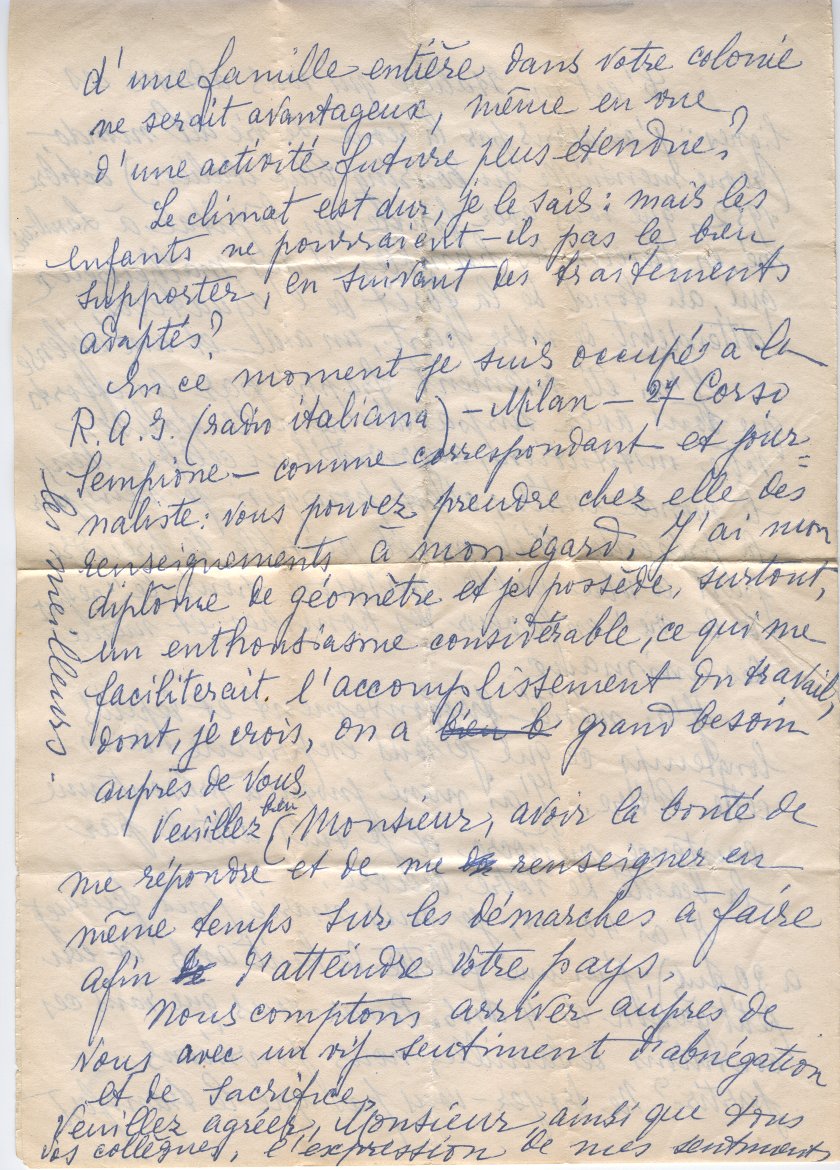 d'une famille entière dans votre colonie
ne serait avantageux, même en vue
d'une activité future plus étendue?
Le climat est dur, je le sais: mais les
enfants ne pourraient-ils pas le bien
supporter, en suivant des traitements
adaptés?
En ce moment je suis occupés à la
R.A.I. (radio italiana) - Milan - 27 Corso
Sempione - comme correspondant et jour=
naliste: vous pouvez prendre chez elle des
renseignements à mon égard. J'ai mon
diplôme de géomètre et je possède, surtout,
un enthousiasme considérable, ce qui me
faciliterait l'accomplissement du travail,
dont, je crois, on a bien b grand besoin
auprès de vous.
Veuillez bien, Monsieur, avoir la bonté de
me répondre et de me renseigner en
même temps sur les démarches à faire
afin d'atteindre votre pays.
Nous comptons arriver auprès de
vous avec un vif sentiment d'abnégation
et de sacrifice.
Veuillez agréer, Monsieur ainsi que tous
vos collègues, l'expression de mes sentiments
les meilleurs.